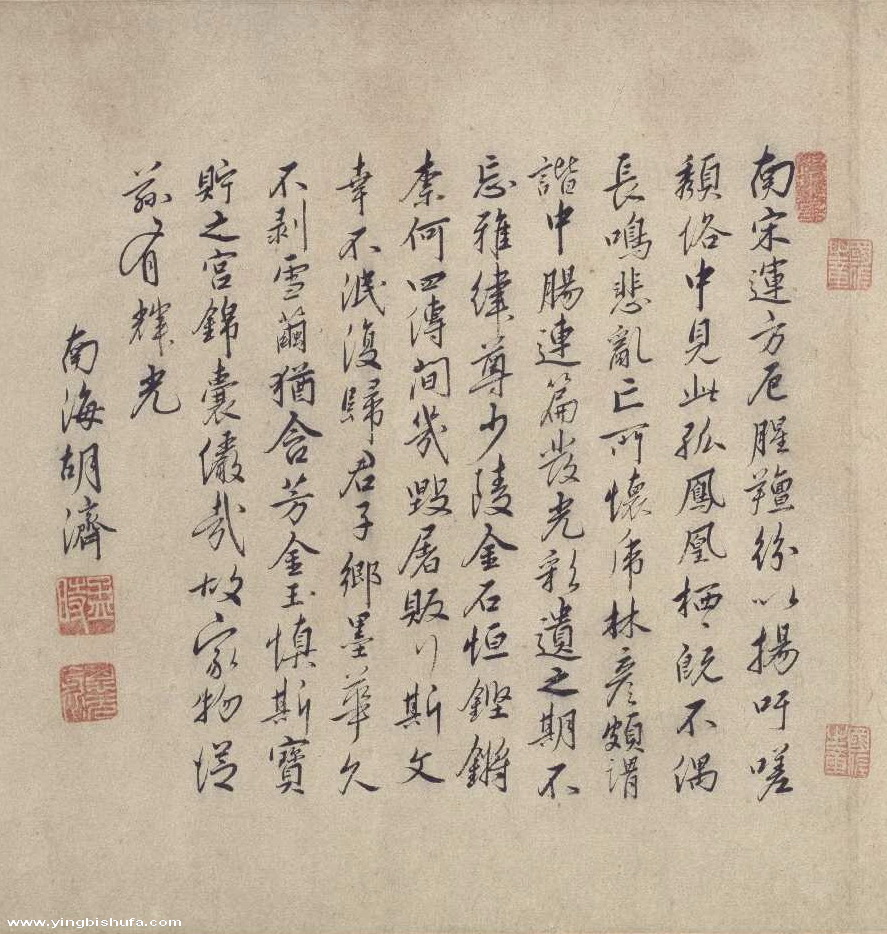 南宋運方厄腥羶紛以揚吁嗟
頹俗中見此孤鳳凰栖栖既不偶
長鳴悲亂亡所懷席林彦頗謂
諧中腸連篇發光彩遺之期不
忘雅律尊少陵金石恒鏗鏘
柰何四傳間幾毀屠販行斯文
幸不泯復歸君子鄉墨華久
不剥雪繭猶含芳金玉慎斯寶
貯之宮錦囊儼哉故家物增
益有輝光
南海胡濟
www.yingbishufa.com